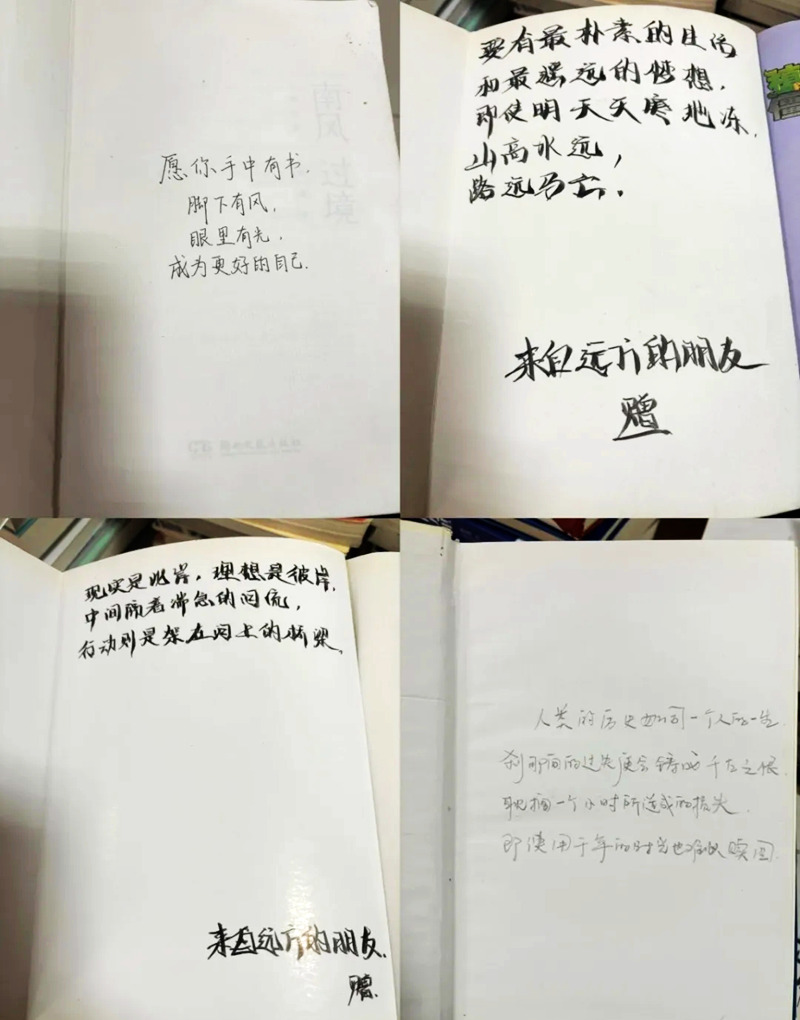 愿你手中有书,
脚下有风,
眼里有光,
成为更好的自己.
南风过境
要有最朴素的生活
和最遥远的梦想,
即使明天天寒地冻,
山高水远,
路远马亡.
来自远方的朋友
赠
现实是此岸,理想是彼岸,
中间隔着湍急的河流,
行动则是架在河上的桥梁.
来自远方的朋友.
赠.
人类的历史如同一个人的一生
刹那间的过失便会铸成千古之恨
耽搁一个小时所造成的损失
即使用千年的时光也难以赎回